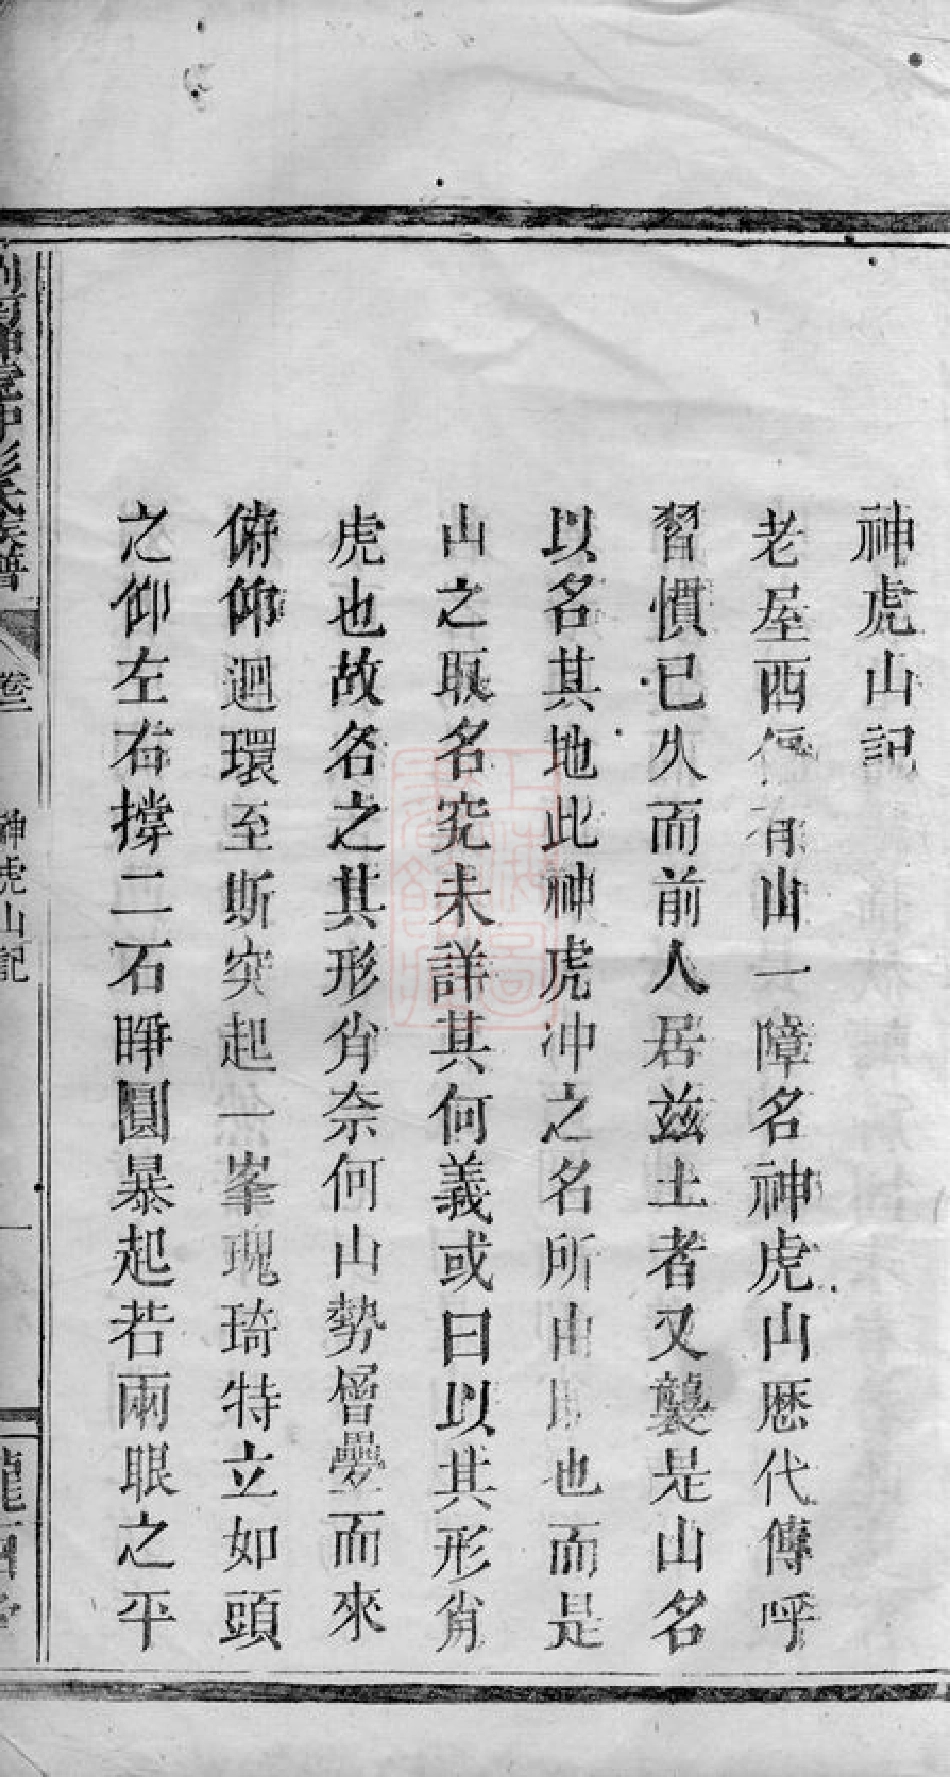 神虎山記
老屋西有山一障名神虎山歷代傳呼
習慣已久而前人居茲土者又襲是山名
以名其地此神虎冲之名所由取也而是
山之取名究未詳其何義或曰以其形肖
虎也故名之其形肖奈何山勢層疊而來
俯仰迴環至斯突起一峯瑰琦特立如頭
之仰左右撐二石睜圓暴起若兩眼之平
神虎冲彭氏族譜
卷二
神虎山記
一